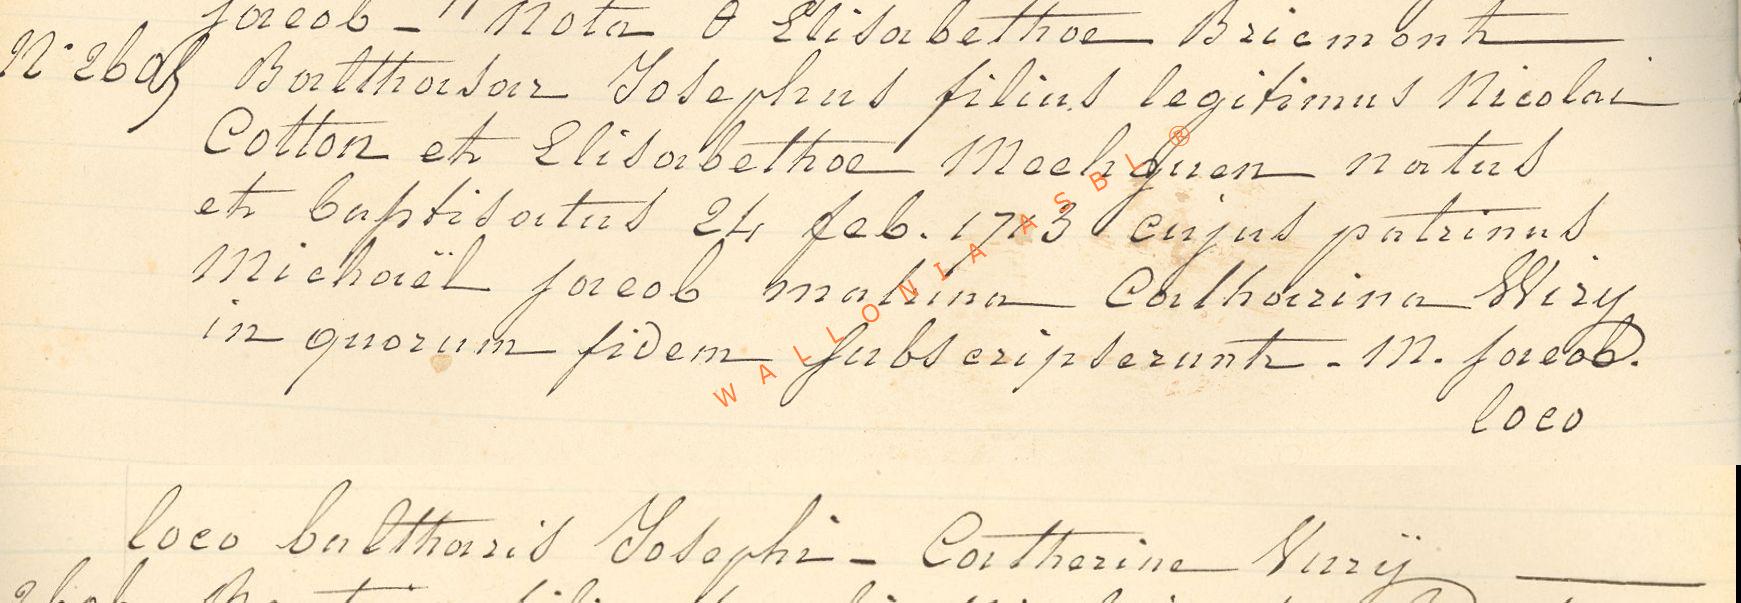 Jacob - Nota Elisabethae Bricmont
Balthasar Josephus filius legitimus Nicolai
Cotton et Elisabethae natus
et baptisatus 24 feb. 1713 cujus patrinus
Michaël Jacob matrina Catharina Wiry
in quorum fidem subscripserunt - M. Jacob.
loco
loco balthazis Josephi - Catherine
WALLONIA ASBL ®